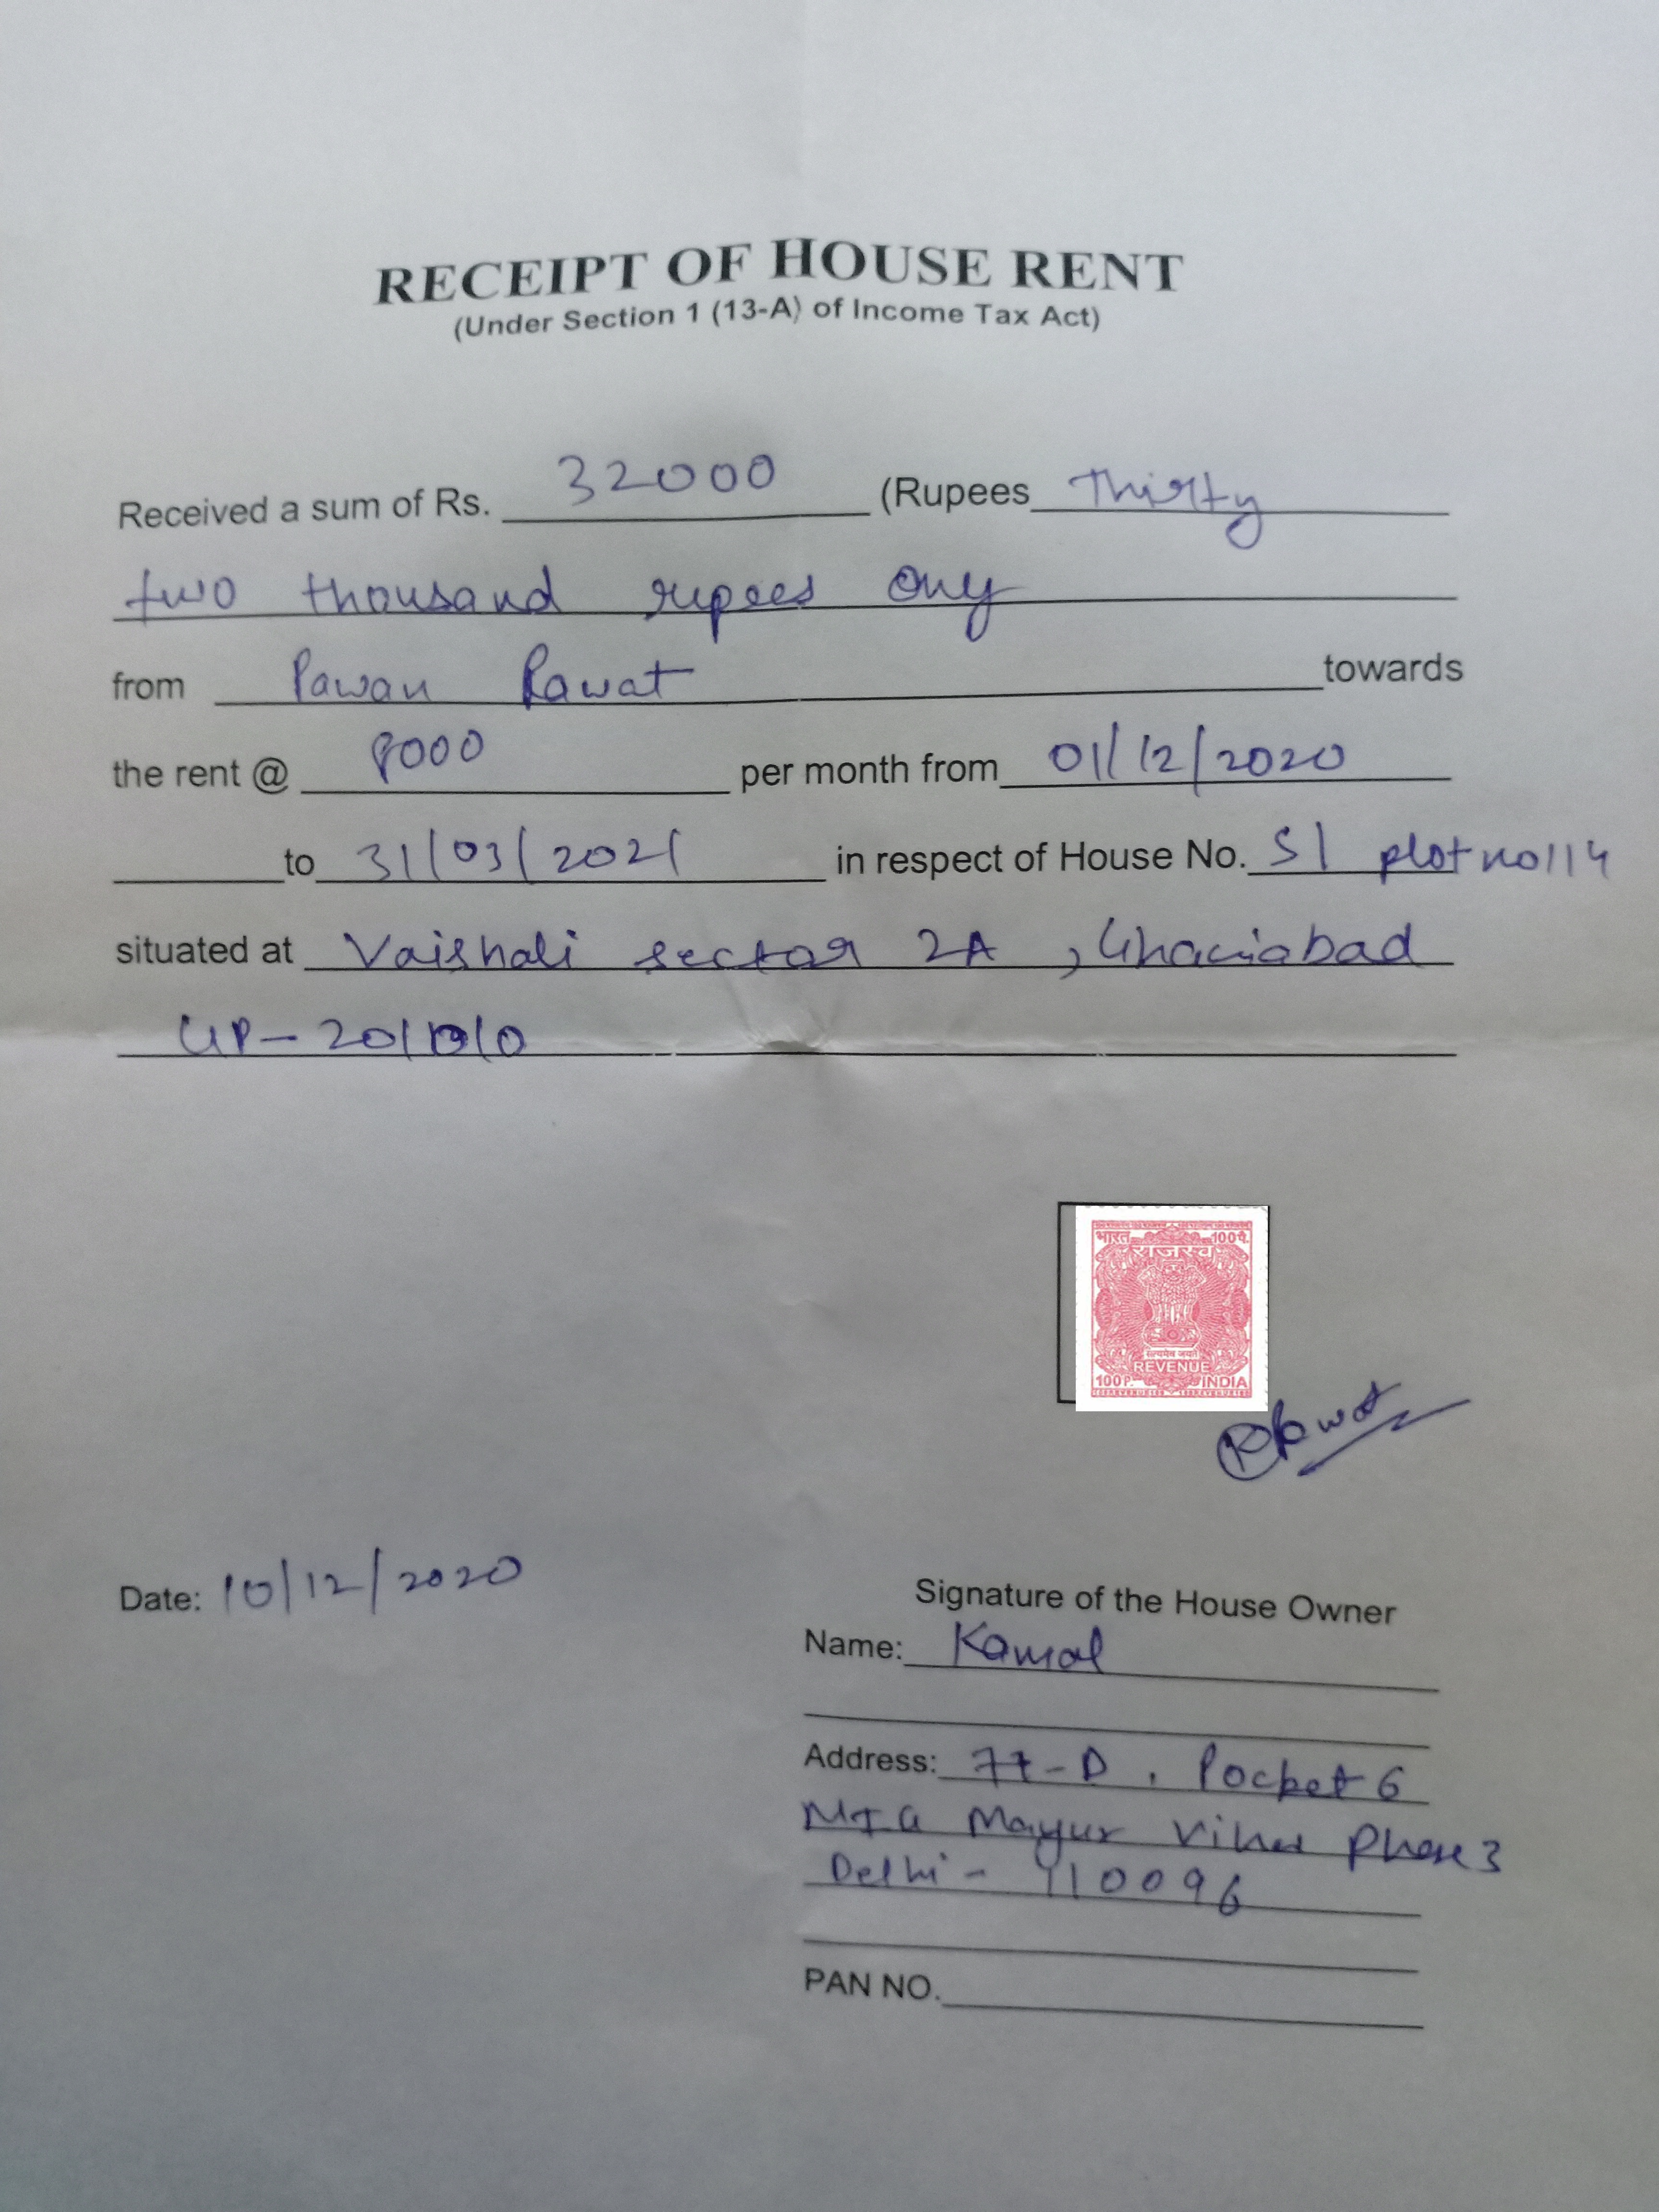 RECEIPT OF HOUSE RENT
(Under Section 1 (13-A) of Income Tax Act)
Received a sum of Rs. 32000 (Rupees Thirty
two thousand rupees only
from Pawan Rawat towards
the rent @ 8000 per month from 01/12/2020
to 31/03/2021 in respect of House No. S1 plot no 114
situated at Vaishali sector 2A , Ghaziabad
UP - 201010
भारत 100पै.
राजस्व
सत्यमेव जयते
REVENUE
100P. INDIA
Rawat
Date: 10/12/2020
Signature of the House Owner
Name: Kamal
Address: 77-D , Pocket 6
MIG Mayur Vihar Phase 3
Delhi - 110096
PAN NO.